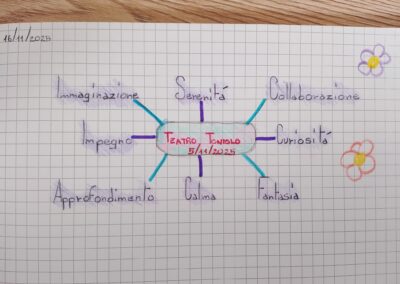 16/11/2025
Immaginazione Serenitá Collaborazione
Impegno TEATRO TONIOLO Curiositá
5/11/2025
Approfondimento Calma Fantasia